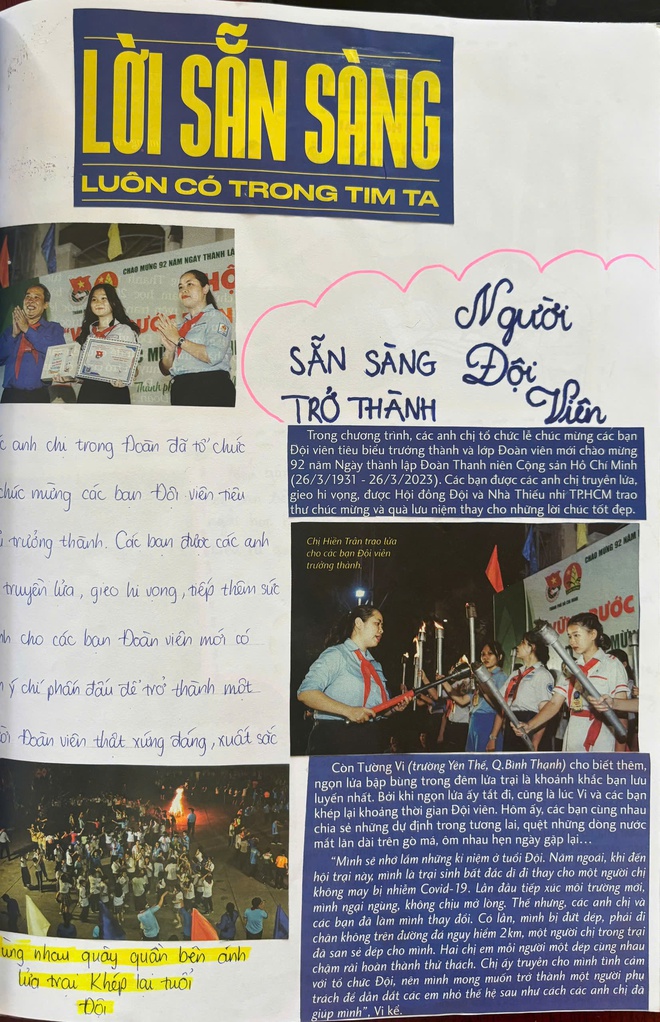 LỜI SẴN SÀNG
LUÔN CÓ TRONG TIM TA
CHÀO MỪNG 92 NĂM NGÀY THÀNH LẬ
Người
SẴN SÀNG Đội
TRỞ THÀNH Viên
anh chị trong Đoàn đã tổ chức
chúc mừng các bạn Đội viên tiêu
trưởng thành. Các bạn được các anh
truyền lửa, gieo hi vọng, tiếp thêm sức
cho các bạn Đoàn viên mới có
ý chí phấn đấu để trở thành một
Đoàn viên thật xứng đáng, xuất sắc
Trong chương trình, các anh chị tổ chức lễ chúc mừng các bạn
Đội viên tiêu biểu trưởng thành và lớp Đoàn viên mới chào mừng
92 năm Ngày thành lập Đoàn Thanh niên Cộng sản Hồ Chí Minh
(26/3/1931 - 26/3/2023). Các bạn được các anh chị truyền lửa,
gieo hi vọng, được Hội đồng Đội và Nhà Thiếu nhi TP.HCM trao
thư chúc mừng và quà lưu niệm thay cho những lời chúc tốt đẹp.
Chị Hiền Trân trao lửa
cho các bạn Đội viên
trưởng thành.
CHÀO MỪNG 92
Còn Tường Vi (trường Yên Thế, Q.Bình Thạnh) cho biết thêm,
ngọn lửa bập bùng trong đêm lửa trại là khoảnh khắc bạn lưu
luyến nhất. Bởi khi ngọn lửa ấy tắt đi, cũng là lúc Vi và các bạn
khép lại khoảng thời gian Đội viên. Hôm ấy, các bạn cùng nhau
chia sẻ những dự định trong tương lai, quệt những dòng nước
mắt lăn dài trên gò má, ôm nhau hẹn ngày gặp lại...
“Mình sẽ nhớ lắm những kỉ niệm ở tuổi Đội. Năm ngoái, khi đến
hội trại này, mình là trại sinh bất đắc dĩ đi thay cho một người chị
không may bị nhiễm Covid-19. Lần đầu tiếp xúc môi trường mới,
mình ngại ngùng, không chịu mở lòng. Thế nhưng, các anh chị và
các bạn đã làm mình thay đổi. Có lần, mình bị đứt dép, phải đi
chân không trên đường đá nguy hiểm 2km, một người chị trong trại
đã san sẻ dép cho mình. Hai chị em mỗi người một dép cùng nhau
chậm rãi hoàn thành thử thách. Chị ấy truyền cho mình tình cảm
với tổ chức Đội, nên mình mong muốn trở thành một người phụ
trách để dẫn dắt các em nhỏ thế hệ sau như cách các anh chị đã
giúp mình”, Vi kể.
ùng nhau quây quần bên ánh
lửa trại khép lại tuổi
Đội